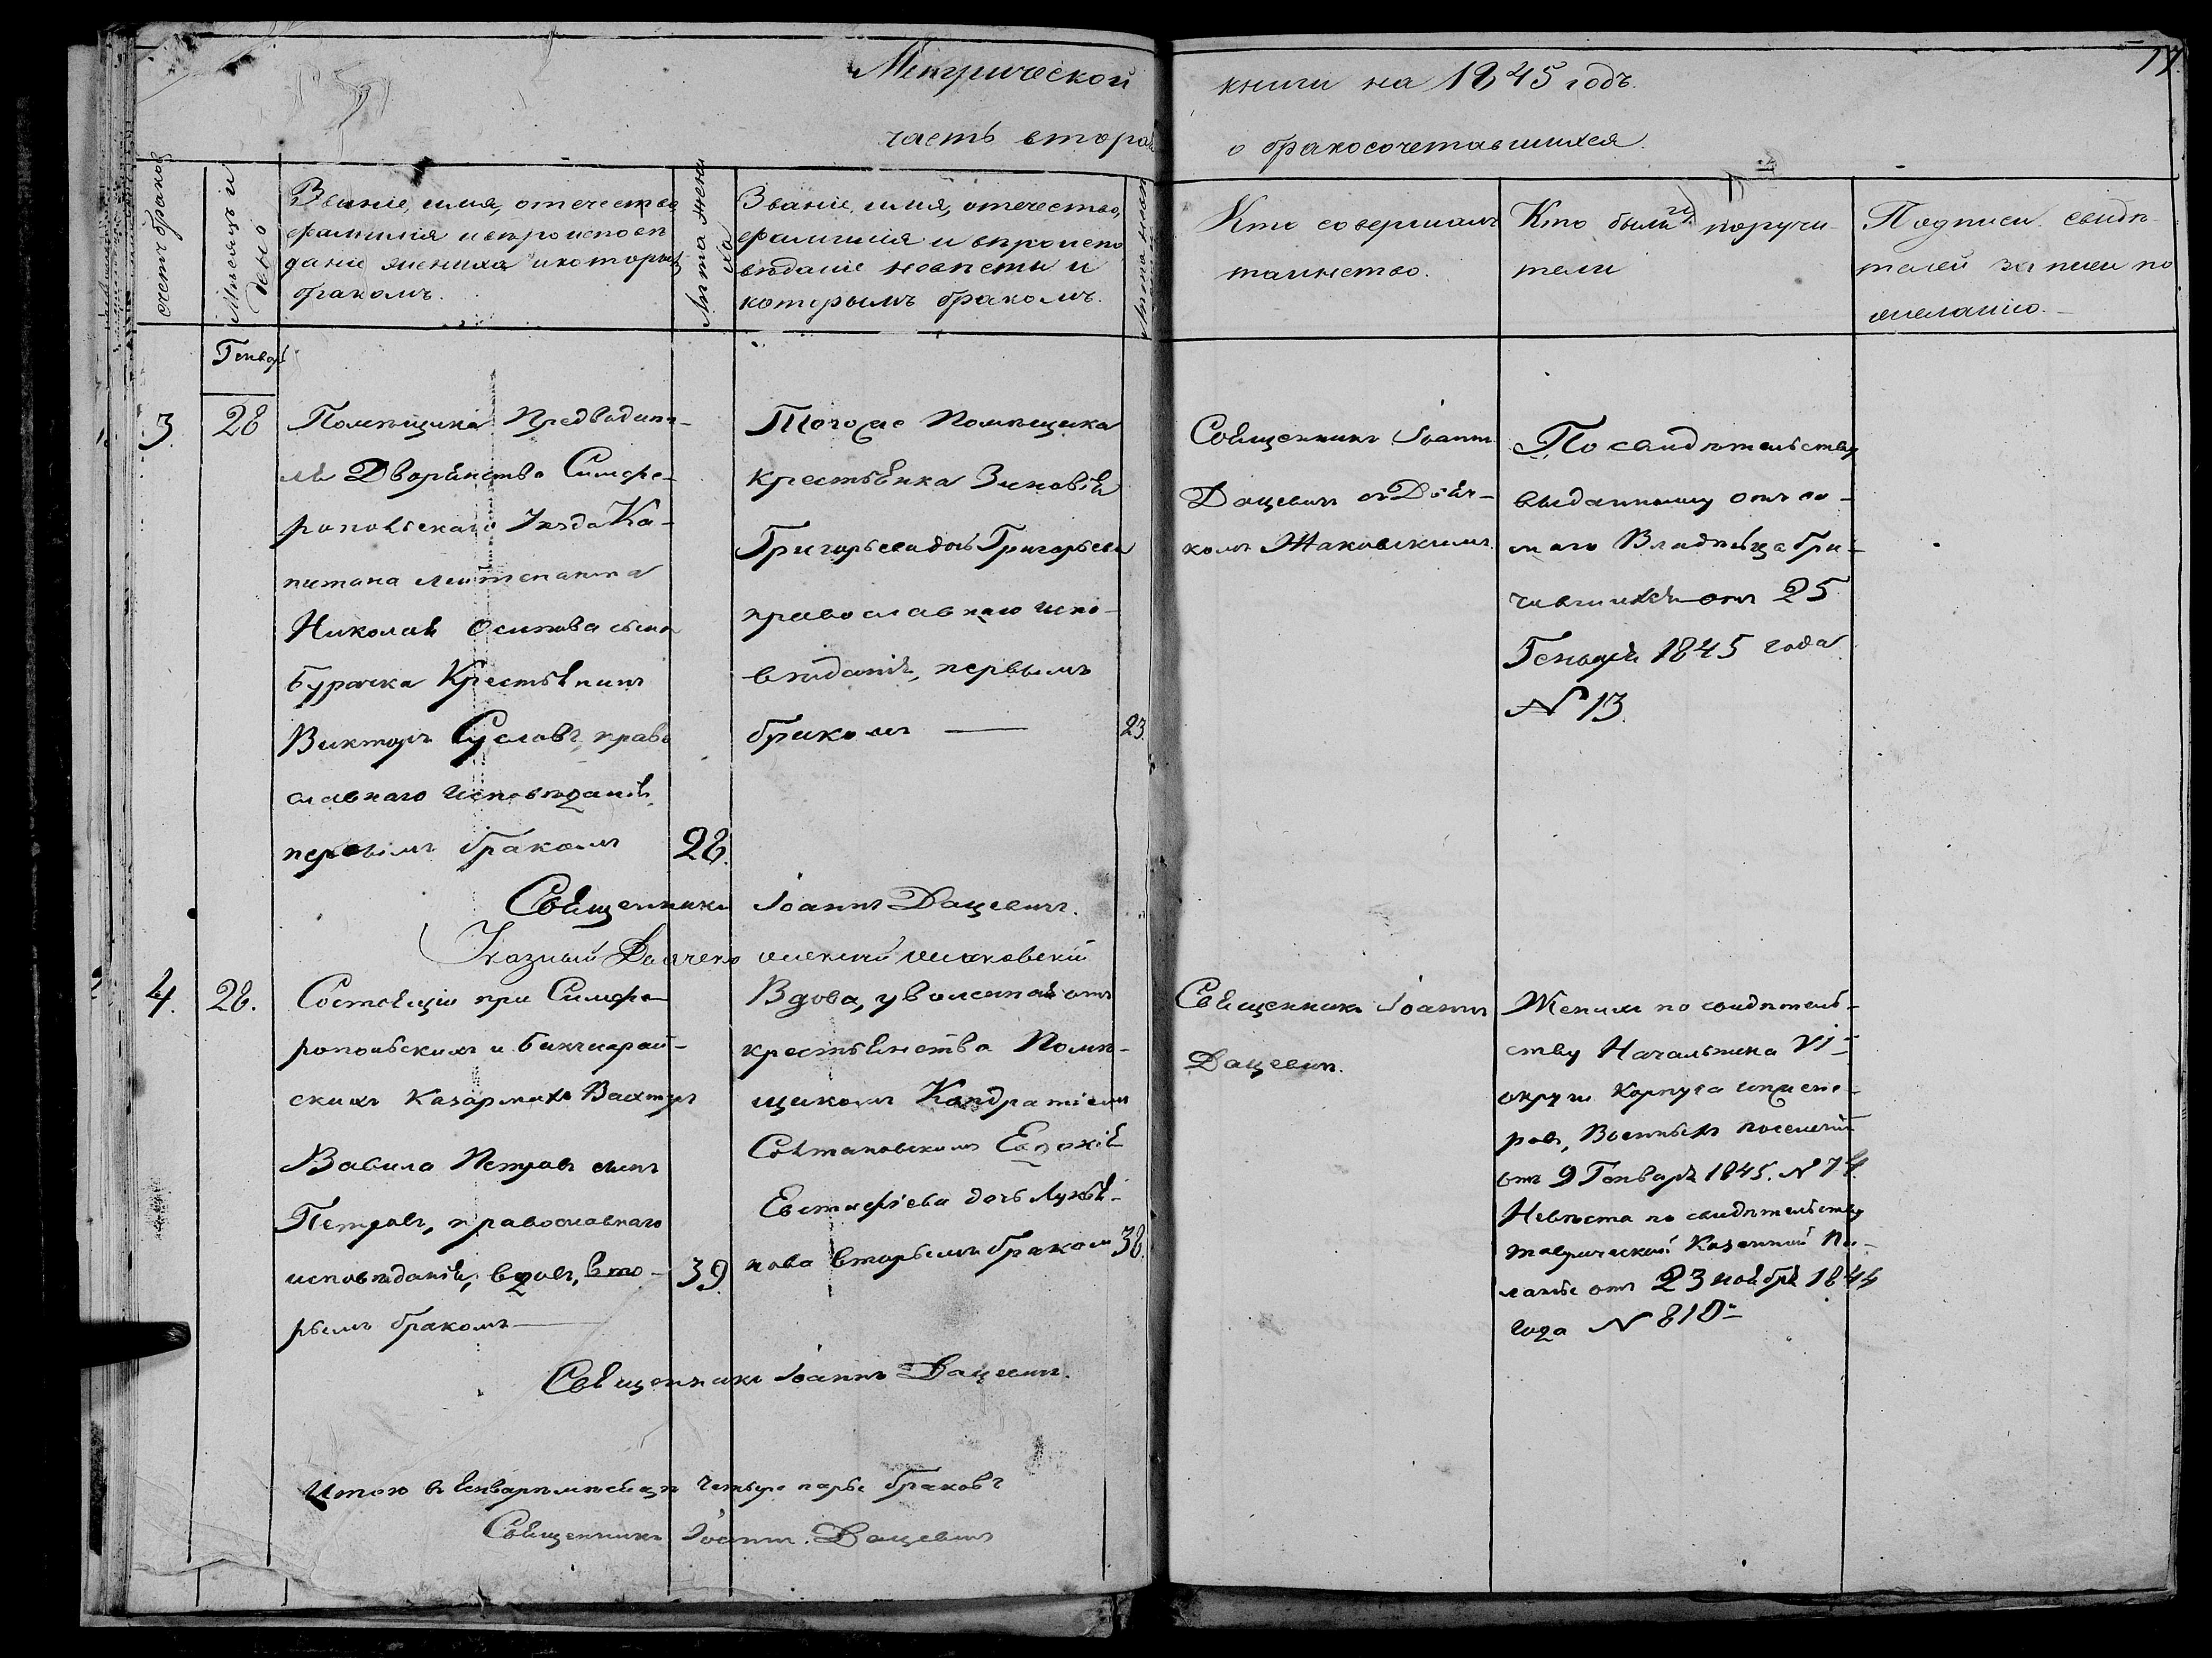 Метрической книги на 1845 годъ.
часть вторая о бракосочетавшихся.
17
счетъ браковъ
Мѣсяцъ и день
Званіе, имя, отечество
фамилія и вѣроисповѣ
даніе жениха и которымъ
бракомъ.
Лѣта жени
ха
Званіе, имя, отечество,
фамилія и вѣроиспо
вѣданіе невѣсты и
которымъ бракомъ.
Кто совершалъ
таинство.
Кто были поручи-
тели
Подписи свидѣ-
телей записи по
желанію.
Генварь
3.
28
Помѣщика Предводите-
ля Дворянства Симфе-
ропольскаго Уѣзда Ка-
питана Лейтенанта
Николая Осипова сына
Бурачка Крестьянинъ
Викторъ Сусловъ, право
славнаго исповѣданія,
первымъ бракомъ
28.
Тогоже Помѣщика
крестьянка Зиновія
Григорьева дочь Григорьева
православнаго испо-
вѣданія, первымъ
бракомъ
23.
Священникъ Іоаннъ
Дацевичъ съ Дьяч-
комъ Жаковскимъ.
По свидѣтельству
выданному отъ са-
маго Владѣльца Бра-
чившихся отъ 25
Генваря 1845 года
№ 13.
Священникъ Іоаннъ Дацевичъ.
Указный Дьячекъ Жаковскій
4.
28.
Состоящій при Симфе-
ропольскихъ и Бахчисарай-
скихъ казармахъ Вахтеръ
Вавила Петровъ сынъ
Петровъ, православнаго
исповѣданія, вдовъ, вто-
рымъ бракомъ
39.
Вдова, уволенная отъ
крестьянства Помѣ-
щикомъ Кондратіемъ
Сѣтановскимъ Евдокія
Евстафіева дочь Лукья-
нова вторымъ бракомъ
38.
Священникъ Іоаннъ
Дацевичъ.
Женихъ по свидѣтель-
ству Начальника VI
округа Корпуса инжене-
ровъ, Военныхъ поселеній
отъ 9 Генваря 1845. № 74.
Невѣста по свидѣтельству
Таврической Казенной Па-
латы отъ 23 ноября 1844
года № 810
Священникъ Іоаннъ Дацевичъ.
Итого въ Генварѣ мѣсяцѣ четыре пары браковъ
Священникъ Іоаннъ Дацевичъ